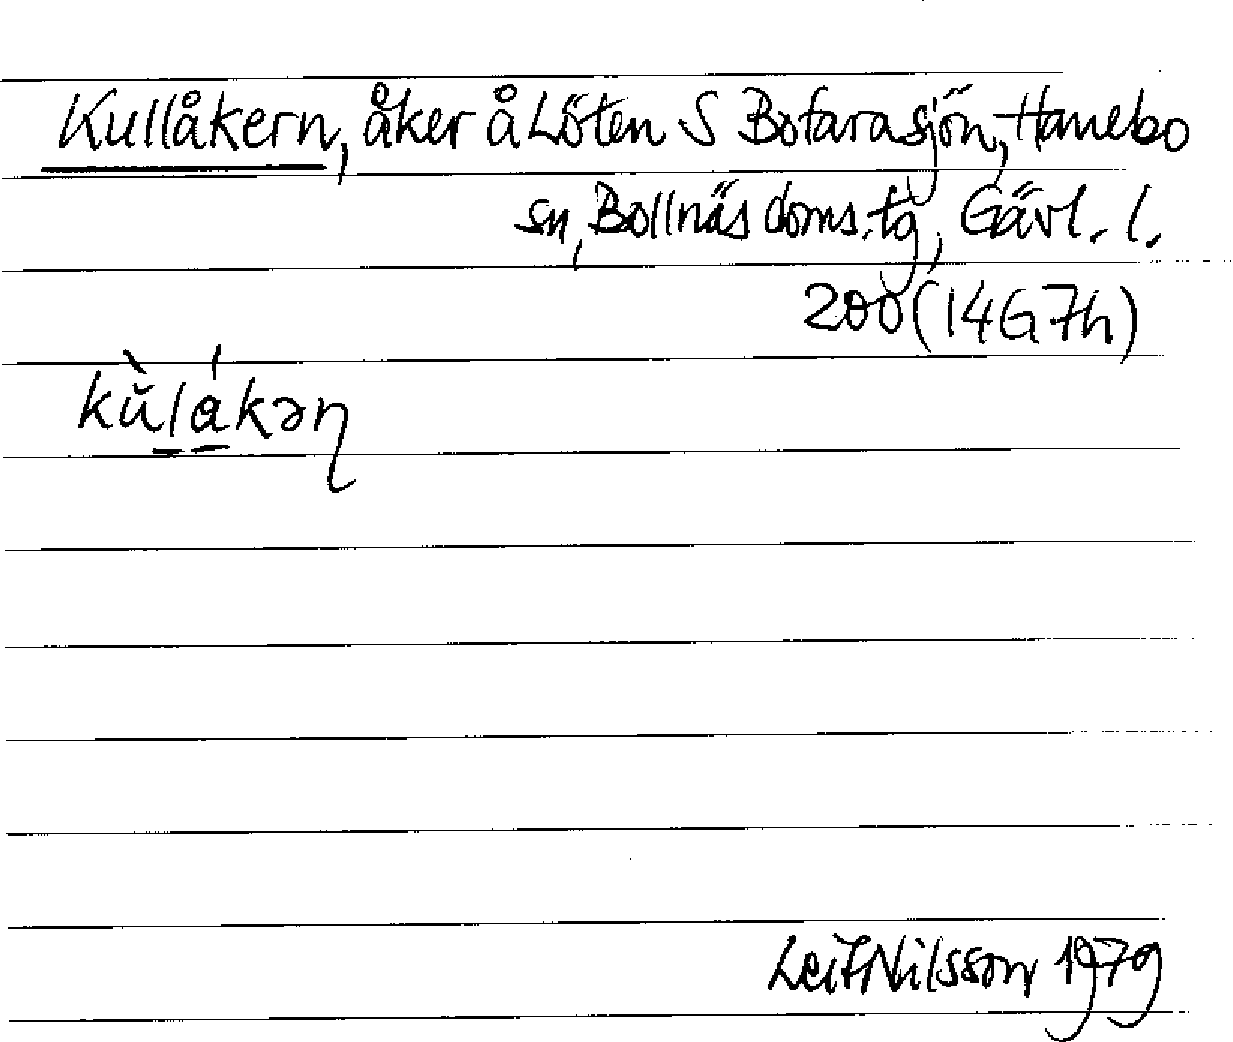 Kullåkern, åker å Löten S Bofarasjön, Hanebo
sn, Bollnäs doms.tg, Gävl. l.
200 (14G 7h)
kù̆lákəɳ
Leif Nilsson 1979